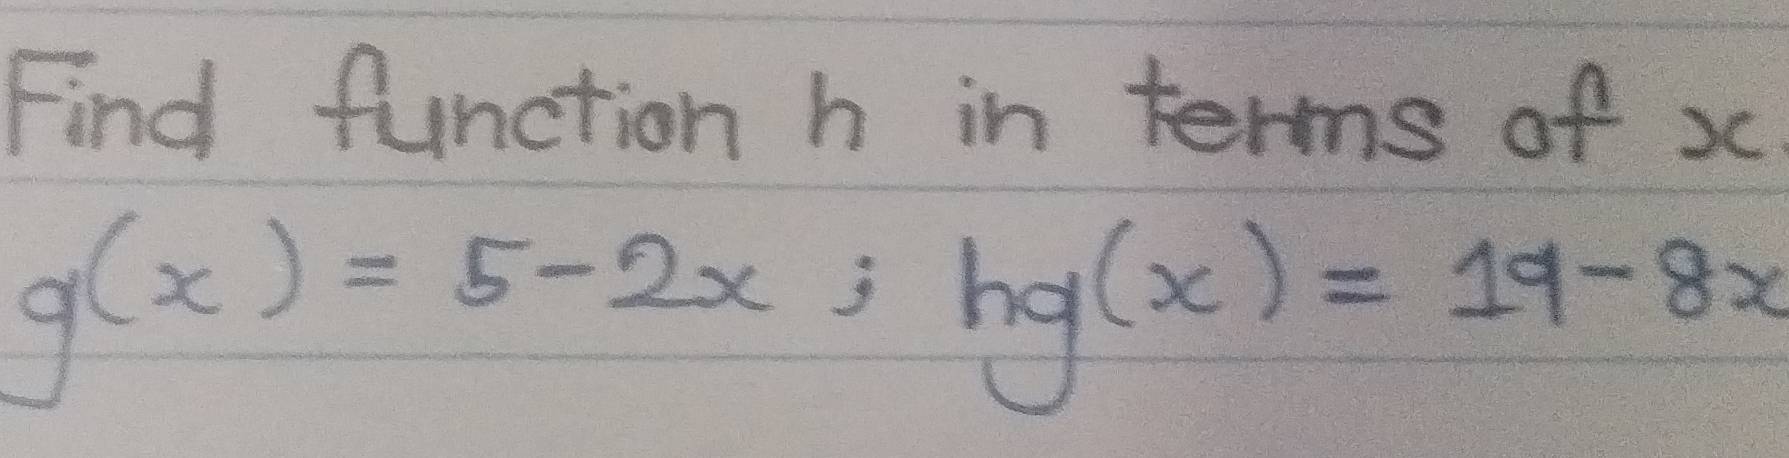 Find function h in terms of x.
g(x) = 5-2x ; hg(x) = 19-8x